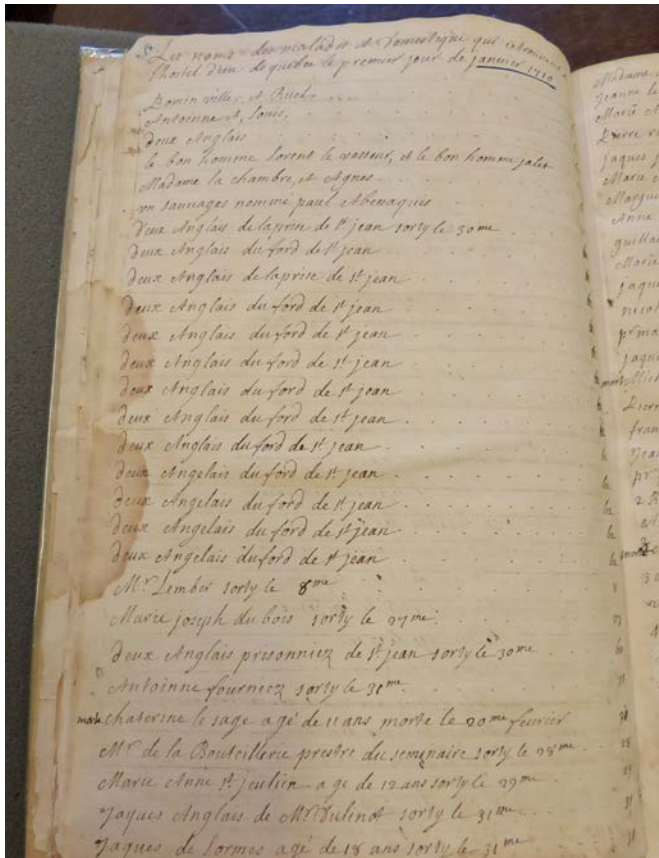 Les noms des malades et domestique qui se trouvent a
lhostel dieu de quebec le premier jour de janvier 1710
Dominville, et Ruel,
Antoinne et, Louis,
deux Anglais
le bon homme lorent le vasseur, et le bon homme jalet
Madame la chambre, et Agnes
un sauvages nommé paul Abenaquis
deux Anglais de laprise de st jean sorty le 30me
deux Anglais du ford de st jean
deux Anglais de laprise de st jean
deux Anglais du ford de st jean
deux Anglais du ford de st jean
deux Anglais du ford de st jean
deux Anglais du ford de st jean
deux Anglais du ford de st jean
deux Anglais du ford de st jean
deux Angelais du ford de st jean
deux Angelais du ford de st jean
deux Angelais du ford de st jean
deux Angelais du ford de st jean
Mr Lember sorty le 8me
Marie joseph du bois sorty le 27me
deux Anglais prisonniez de st jean sorty le 30me
Antoinne fourniez sorty le 31me
morte chaterine le sage agé de 11 ans morte le 20me feurier
Mr de la Bouteillerie prestre du seminaire sorty le 28me
Marie Anne st jeulien age de 12 ans sorty le 29me
Jaques Anglais de Mr sorty le 31me
Jaques de lormes agé de 18 ans sorty le 31me